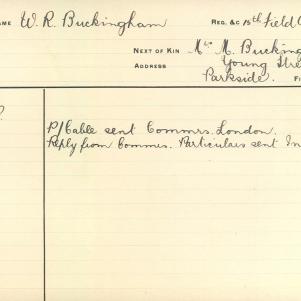 AME W. R. Buckingham REG. &C 15th Field
NEXT OF KIN Mrs M. Bucking
ADDRESS Young Stre
Parkside.
?
P/Cable sent Commrs. London.
Reply from Commrs. Particulars sent In